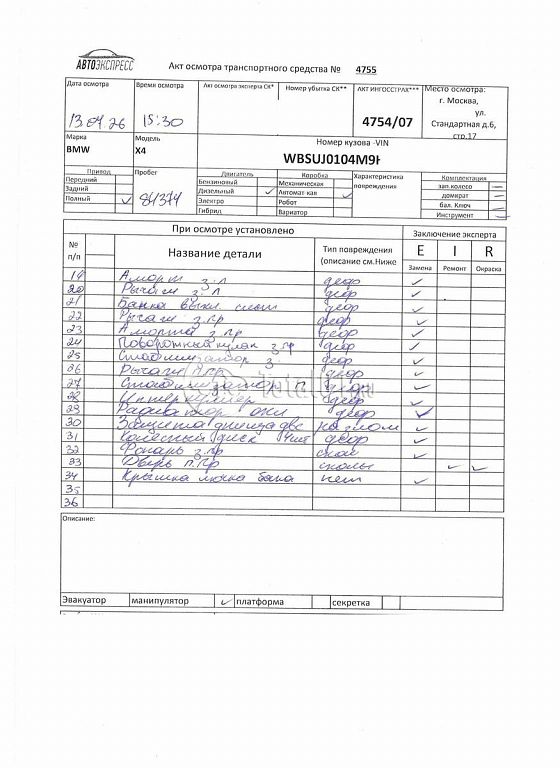 АВТОЭКСПРЕСС
Акт осмотра транспортного средства № 4755
Дата осмотра
13.04.26
Время осмотра
15:30
Акт осмотра эксперта СК*
Номер убытка СК**
АКТ ИНГОССТРАХ***
4754/07
Место осмотра:
г. Москва,
ул.
Стандартная д.6,
стр.17
Марка
BMW
Модель
X4
Номер кузова -VIN
WBSUJ0104M9
Привод
Передний
Задний
Полный
Пробег
84374
Двигатель
Бензиновый
Дизельный
Электро
Гибрид
Коробка
Механическая
Автомат кая
Робот
Вариатор
Характеристика
повреждения
Комплектация
зап.колесо
домкрат
бал. Ключ
Инструмент
При осмотре установлено
Заключение эксперта
№
п/п
Название детали
Тип повреждения
(описание см.Ниже
E I R
Замена Ремонт Окраска
19 Аморт з.л деф
20 Рычаги з.л деф
21 Банка выхл. сист деф
22 Рычаги з.пр деф
23 Аморт з.пр деф
24 Поворотный кулак з.пр деф
25 Стабилизатор з. деф
26 Рычаги п.пр деф
27 Стабилизатор п деф
28 Интеркулер деф
29 Радиатор деф
30 Защита днища двс
31 Колесный диск 4шт деф
32 Фонарь з.пр скол
33 Дверь п.пр сколы
34 Крышка лючка бака нет
35
36
Описание:
Эвакуатор манипулятор платформа секретка